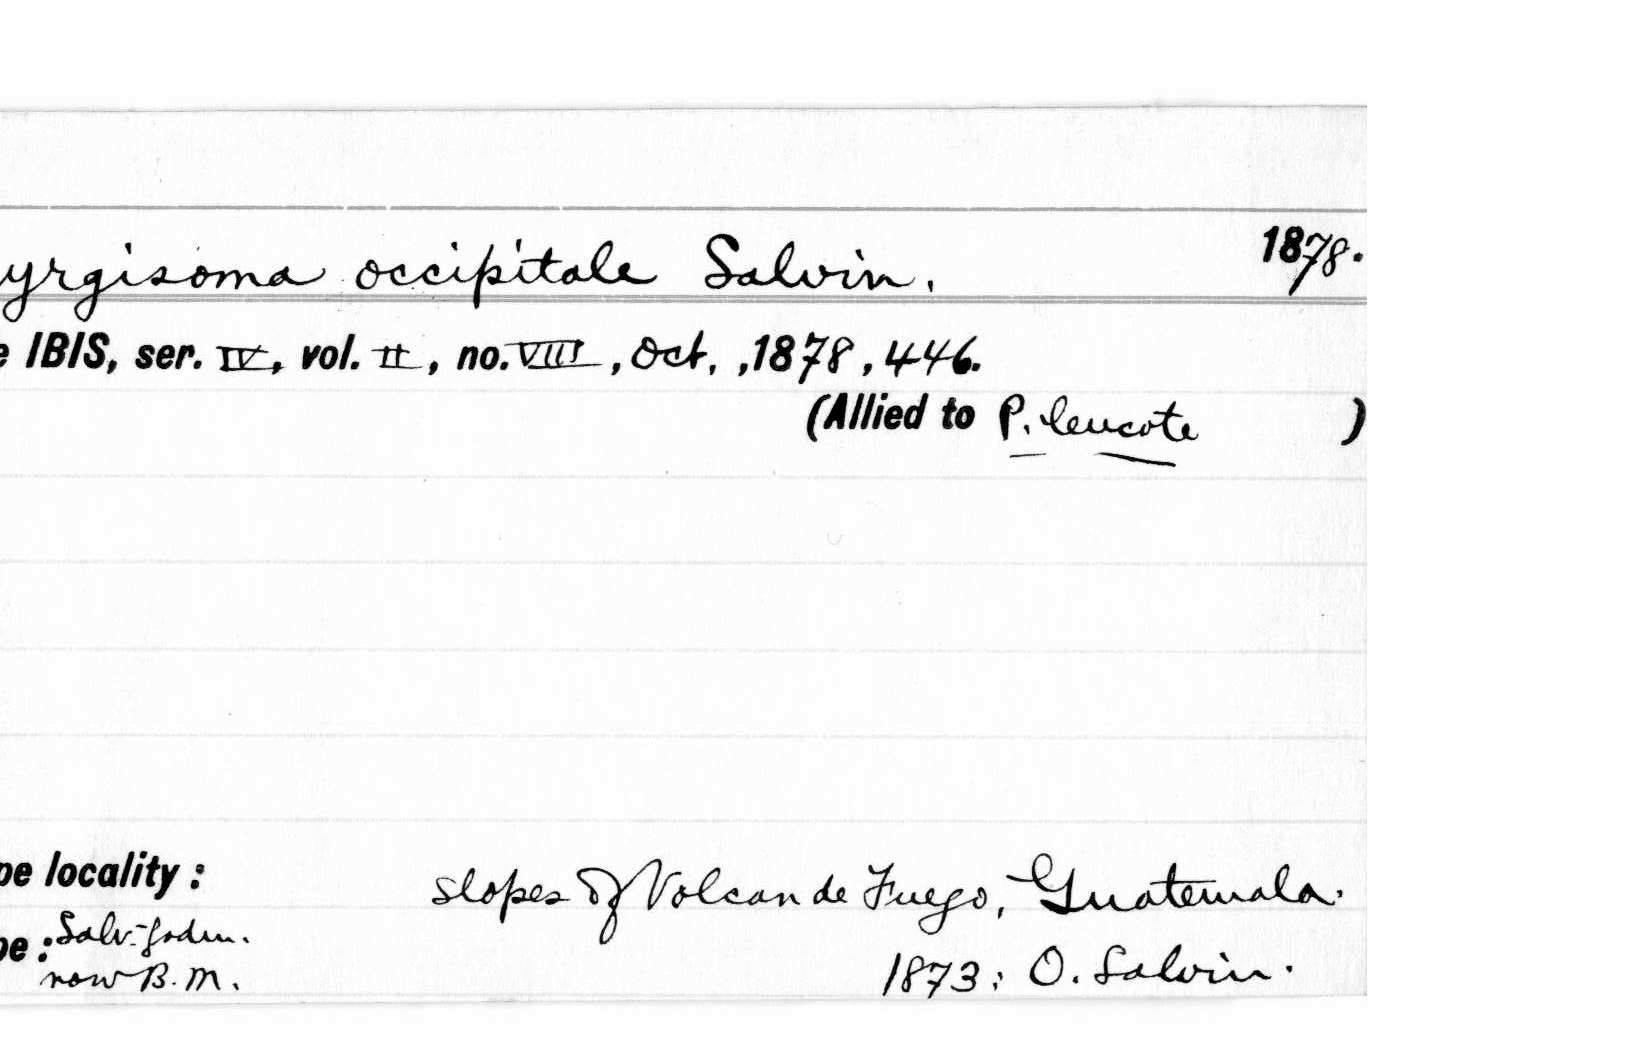 yrgisoma occipitale Salvin. 1878.
e IBIS, ser. IV, vol. II, no. VIII, Oct., ,1878, 446.
(Allied to P. leucote )
pe locality: slopes of Volcan de Fuego, Guatemala.
pe: Salv.-Godm.
now B.M. 1873: O. Salvin.